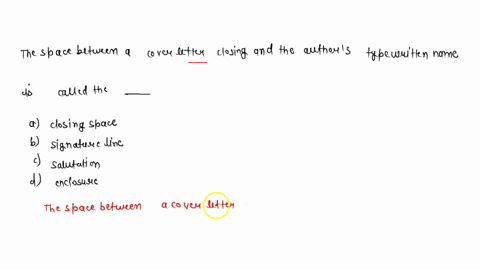 The space between a cover letter closing and the author's typewritten name
is called the ____
a) closing space
b) signature line
c) salutation
d) enclosure
The space between a cover letter